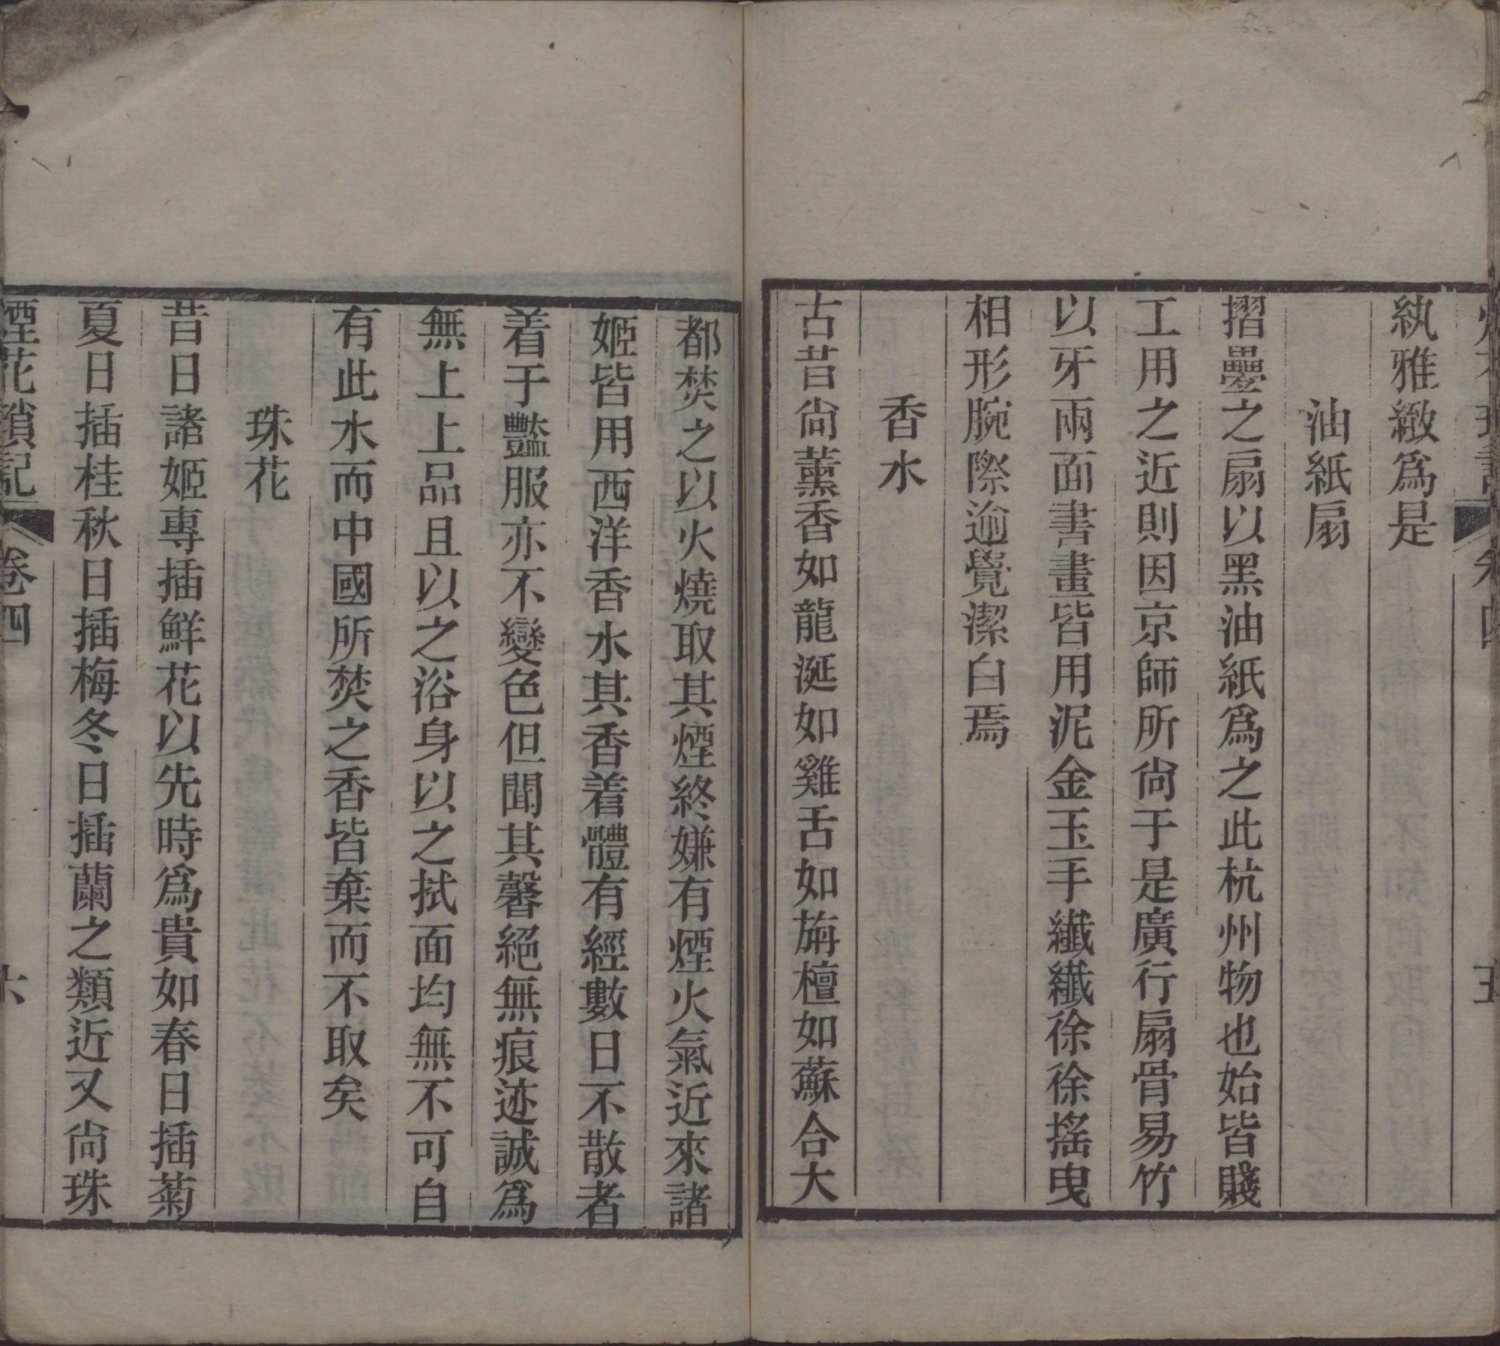 紈雅緻爲是
油紙扇
摺疊之扇以黑油紙爲之此杭州物也始皆賤
工用之近則因京師所尙于是廣行扇骨易竹
以牙兩面書畫皆用泥金玉手纖纖徐徐搖曳
相形腕際逾覺潔白焉
香水
古昔尙薰香如龍涎如雞舌如旃檀如蘇合大
都焚之以火燒取其煙終嫌有煙火氣近來諸
姬皆用西洋香水其香着體有經數日不散者
着于豔服亦不變色但聞其馨絕無痕迹誠爲
無上上品且以之浴身以之拭面均無不可自
有此水而中國所焚之香皆棄而不取矣
珠花
昔日諸姬專插鮮花以先時爲貴如春日插菊
夏日插桂秋日插梅冬日插蘭之類近又尙珠
煙花瑣記 卷四 六